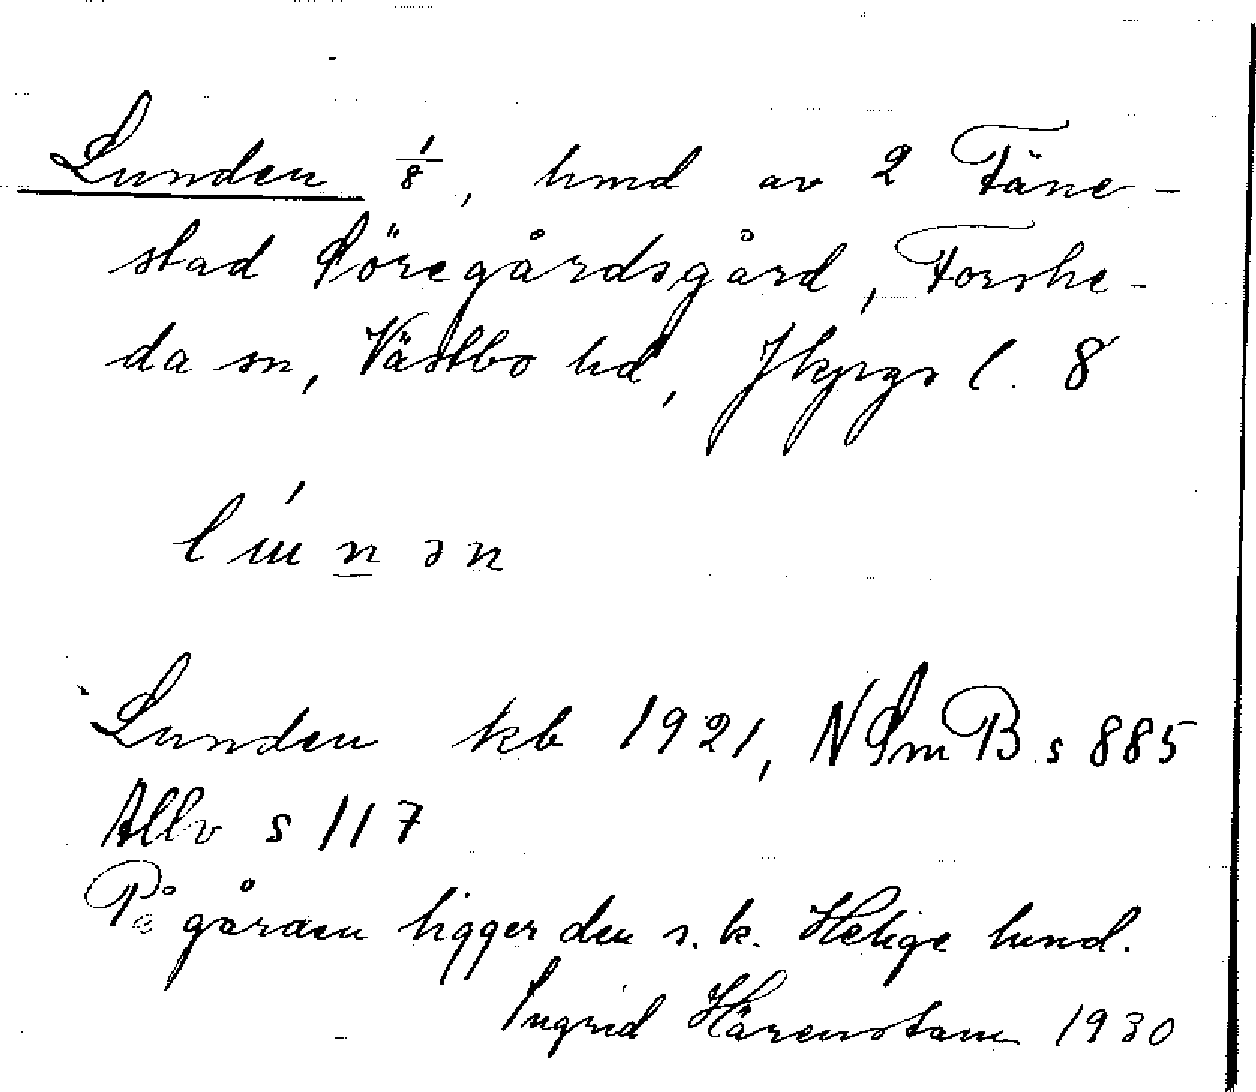 Lunden 1/8, hmd av 2 Täne-
stad Söregårdsgård, Forshe-
da sn, Västbo hd, Jkpgs l. 8
Lunden kb 1921, NSmB s 885
Allv s 117
På gården ligger den s.k. Helige lund.
Ingrid Härenstam 1930